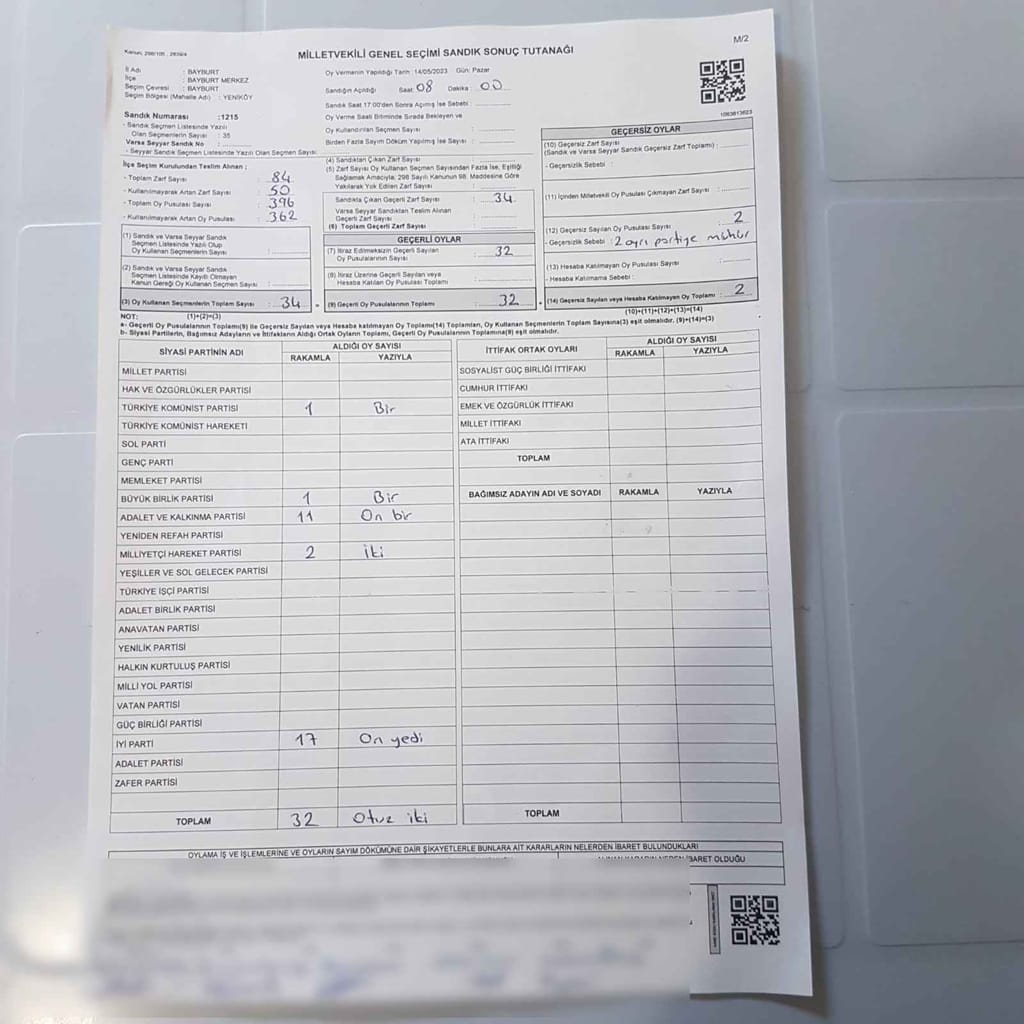 Kanun: 298/105 , 2839/4
MİLLETVEKİLİ GENEL SEÇİMİ SANDIK SONUÇ TUTANAĞI
M/2
İl Adı : BAYBURT
İlçe : BAYBURT MERKEZ
Seçim Çevresi : BAYBURT
Seçim Bölgesi (Mahalle Adı) : YENİKÖY
Sandık Numarası :1215
- Sandık Seçmen Listesinde Yazılı
Olan Seçmenlerin Sayısı : 35
Varsa Seyyar Sandık No :
- Seyyar Sandık Seçmen Listesinde Yazılı Olan Seçmen Sayısı:
İlçe Seçim Kurulundan Teslim Alınan ;
- Toplam Zarf Sayısı : 84
- Kullanılmayarak Artan Zarf Sayısı : 50
- Toplam Oy Pusulası Sayısı : 396
- Kullanılmayarak Artan Oy Pusulası : 362
(1) Sandık ve Varsa Seyyar Sandık
Seçmen Listesinde Yazılı Olup
Oy Kullanan Seçmenlerin Sayısı :
(2) Sandık ve Varsa Seyyar Sandık
Seçmen Listesinde Kayıtlı Olmayan
Kanun Gereği Oy Kullanan Seçmen Sayısı :
(3) Oy Kullanan Seçmenlerin Toplam Sayısı : 34
Oy Vermenin Yapıldığı Tarih :14/05/2023 Gün: Pazar
Sandığın Açıldığı Saat: 08 Dakika : 00
Sandık Saat 17:00'den Sonra Açılmış İse Sebebi :
Oy Verme Saati Bitiminde Sırada Bekleyen ve
Oy Kullandırılan Seçmen Sayısı :
Birden Fazla Sayım Döküm Yapılmış İse Sayısı :
(4) Sandıktan Çıkan Zarf Sayısı :
(5) Zarf Sayısı Oy Kullanan Seçmen Sayısından Fazla İse, Eşitliği
Sağlamak Amacıyla; 298 Sayılı Kanunun 98. Maddesine Göre
Yakılarak Yok Edilen Zarf Sayısı :
Sandıkta Çıkan Geçerli Zarf Sayısı : 34
Varsa Seyyar Sandıktan Teslim Alınan
Geçerli Zarf Sayısı :
(6) Toplam Geçerli Zarf Sayısı :
GEÇERLİ OYLAR
(7) İtiraz Edilmeksizin Geçerli Sayılan
Oy Pusulalarının Sayısı : 32
(8) İtiraz Üzerine Geçerli Sayılan veya
Hesaba Katılan Oy Pusulası Sayısı :
(9) Geçerli Oy Pusulalarının Toplamı : 32
1083813623
GEÇERSİZ OYLAR
(10) Geçersiz Zarf Sayısı
(Sandık ve Varsa Seyyar Sandık Geçersiz Zarf Toplamı) :
- Geçersizlik Sebebi :
(11) İçinden Milletvekili Oy Pusulası Çıkmayan Zarf Sayısı :
(12) Geçersiz Sayılan Oy Pusulası Sayısı : 2
- Geçersizlik Sebebi : 2 ayrı partiye mühür
(13) Hesaba Katılmayan Oy Pusulası Sayısı :
- Hesaba Katılmama Sebebi :
(14) Geçersiz Sayılan veya Hesaba Katılmayan Oy Toplamı : 2
NOT: (1)+(2)=(3) (10)+(11)+(12)+(13)=(14)
a- Geçerli Oy Pusulaları Toplamı(9) ile Geçersiz Sayılan veya Hesaba katılmayan Oy Toplamı(14) Toplamları, Oy Kullanan Seçmenlerin Toplam Sayısına(3) eşit olmalıdır. (9)+(14)=(3)
b- Siyasi Partilerin, Bağımsız Adayların ve İttifakların Aldığı Ortak Oyların Toplamı, Geçerli Oy Pusulalarının Toplamına(9) eşit olmalıdır.
SİYASİ PARTİNİN ADI ALDIĞI OY SAYISI
RAKAMLA YAZIYLA
MİLLET PARTİSİ
HAK VE ÖZGÜRLÜKLER PARTİSİ
TÜRKİYE KOMÜNİST PARTİSİ 1 Bir
TÜRKİYE KOMÜNİST HAREKETİ
SOL PARTİ
GENÇ PARTİ
MEMLEKET PARTİSİ
BÜYÜK BİRLİK PARTİSİ 1 Bir
ADALET VE KALKINMA PARTİSİ 11 On bir
YENİDEN REFAH PARTİSİ
MİLLİYETÇİ HAREKET PARTİSİ 2 iki
YEŞİLLER VE SOL GELECEK PARTİSİ
TÜRKİYE İŞÇİ PARTİSİ
ADALET BİRLİK PARTİSİ
ANAVATAN PARTİSİ
YENİLİK PARTİSİ
HALKIN KURTULUŞ PARTİSİ
MİLLİ YOL PARTİSİ
VATAN PARTİSİ
GÜÇ BİRLİĞİ PARTİSİ
İYİ PARTİ 17 On yedi
ADALET PARTİSİ
ZAFER PARTİSİ
TOPLAM 32 Otuz iki
İTTİFAK ORTAK OYLARI ALDIĞI OY SAYISI
RAKAMLA YAZIYLA
SOSYALİST GÜÇ BİRLİĞİ İTTİFAKI
CUMHUR İTTİFAKI
EMEK VE ÖZGÜRLÜK İTTİFAKI
MİLLET İTTİFAKI
ATA İTTİFAKI
TOPLAM
BAĞIMSIZ ADAYIN ADI VE SOYADI RAKAMLA YAZIYLA
TOPLAM
OYLAMA İŞ VE İŞLEMLERİNE VE OYLARIN SAYIM DÖKÜMÜNE DAİR ŞİKAYETLERLE BUNLARA AİT KARARLARIN NELERDEN İBARET BULUNDUKLARI
ALINAN KARARIN NEDEN İBARET OLDUĞU